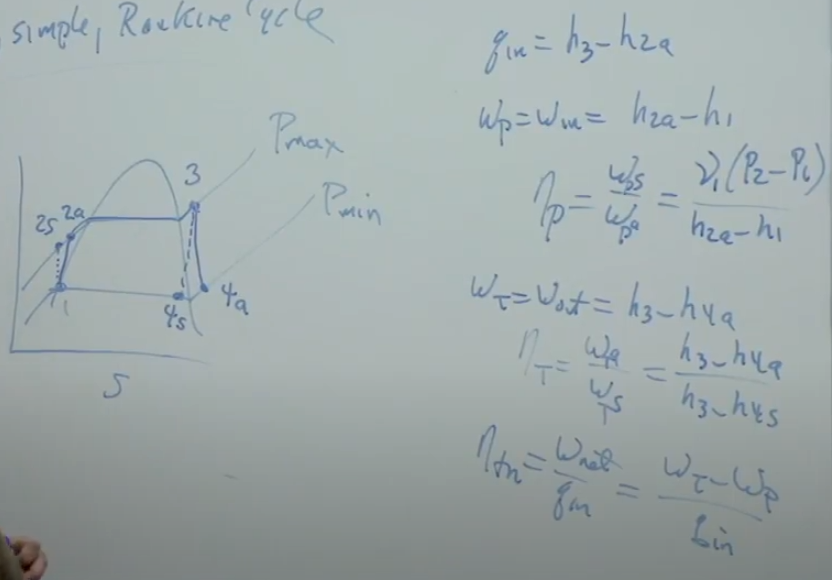 simple, Rankine Cycle
Pmax
3
Pmin
2s 2a
1
4s
4a
S
qin = h3 - h2a
wp = win = h2a - h1
ηp = wps / wpa = ν1(P2 - P1) / h2a - h1
wT = wout = h3 - h4a
ηT = wa / wTs = h3 - h4a / h3 - h4s
ηth = wnet / qin = wT - wp / qin